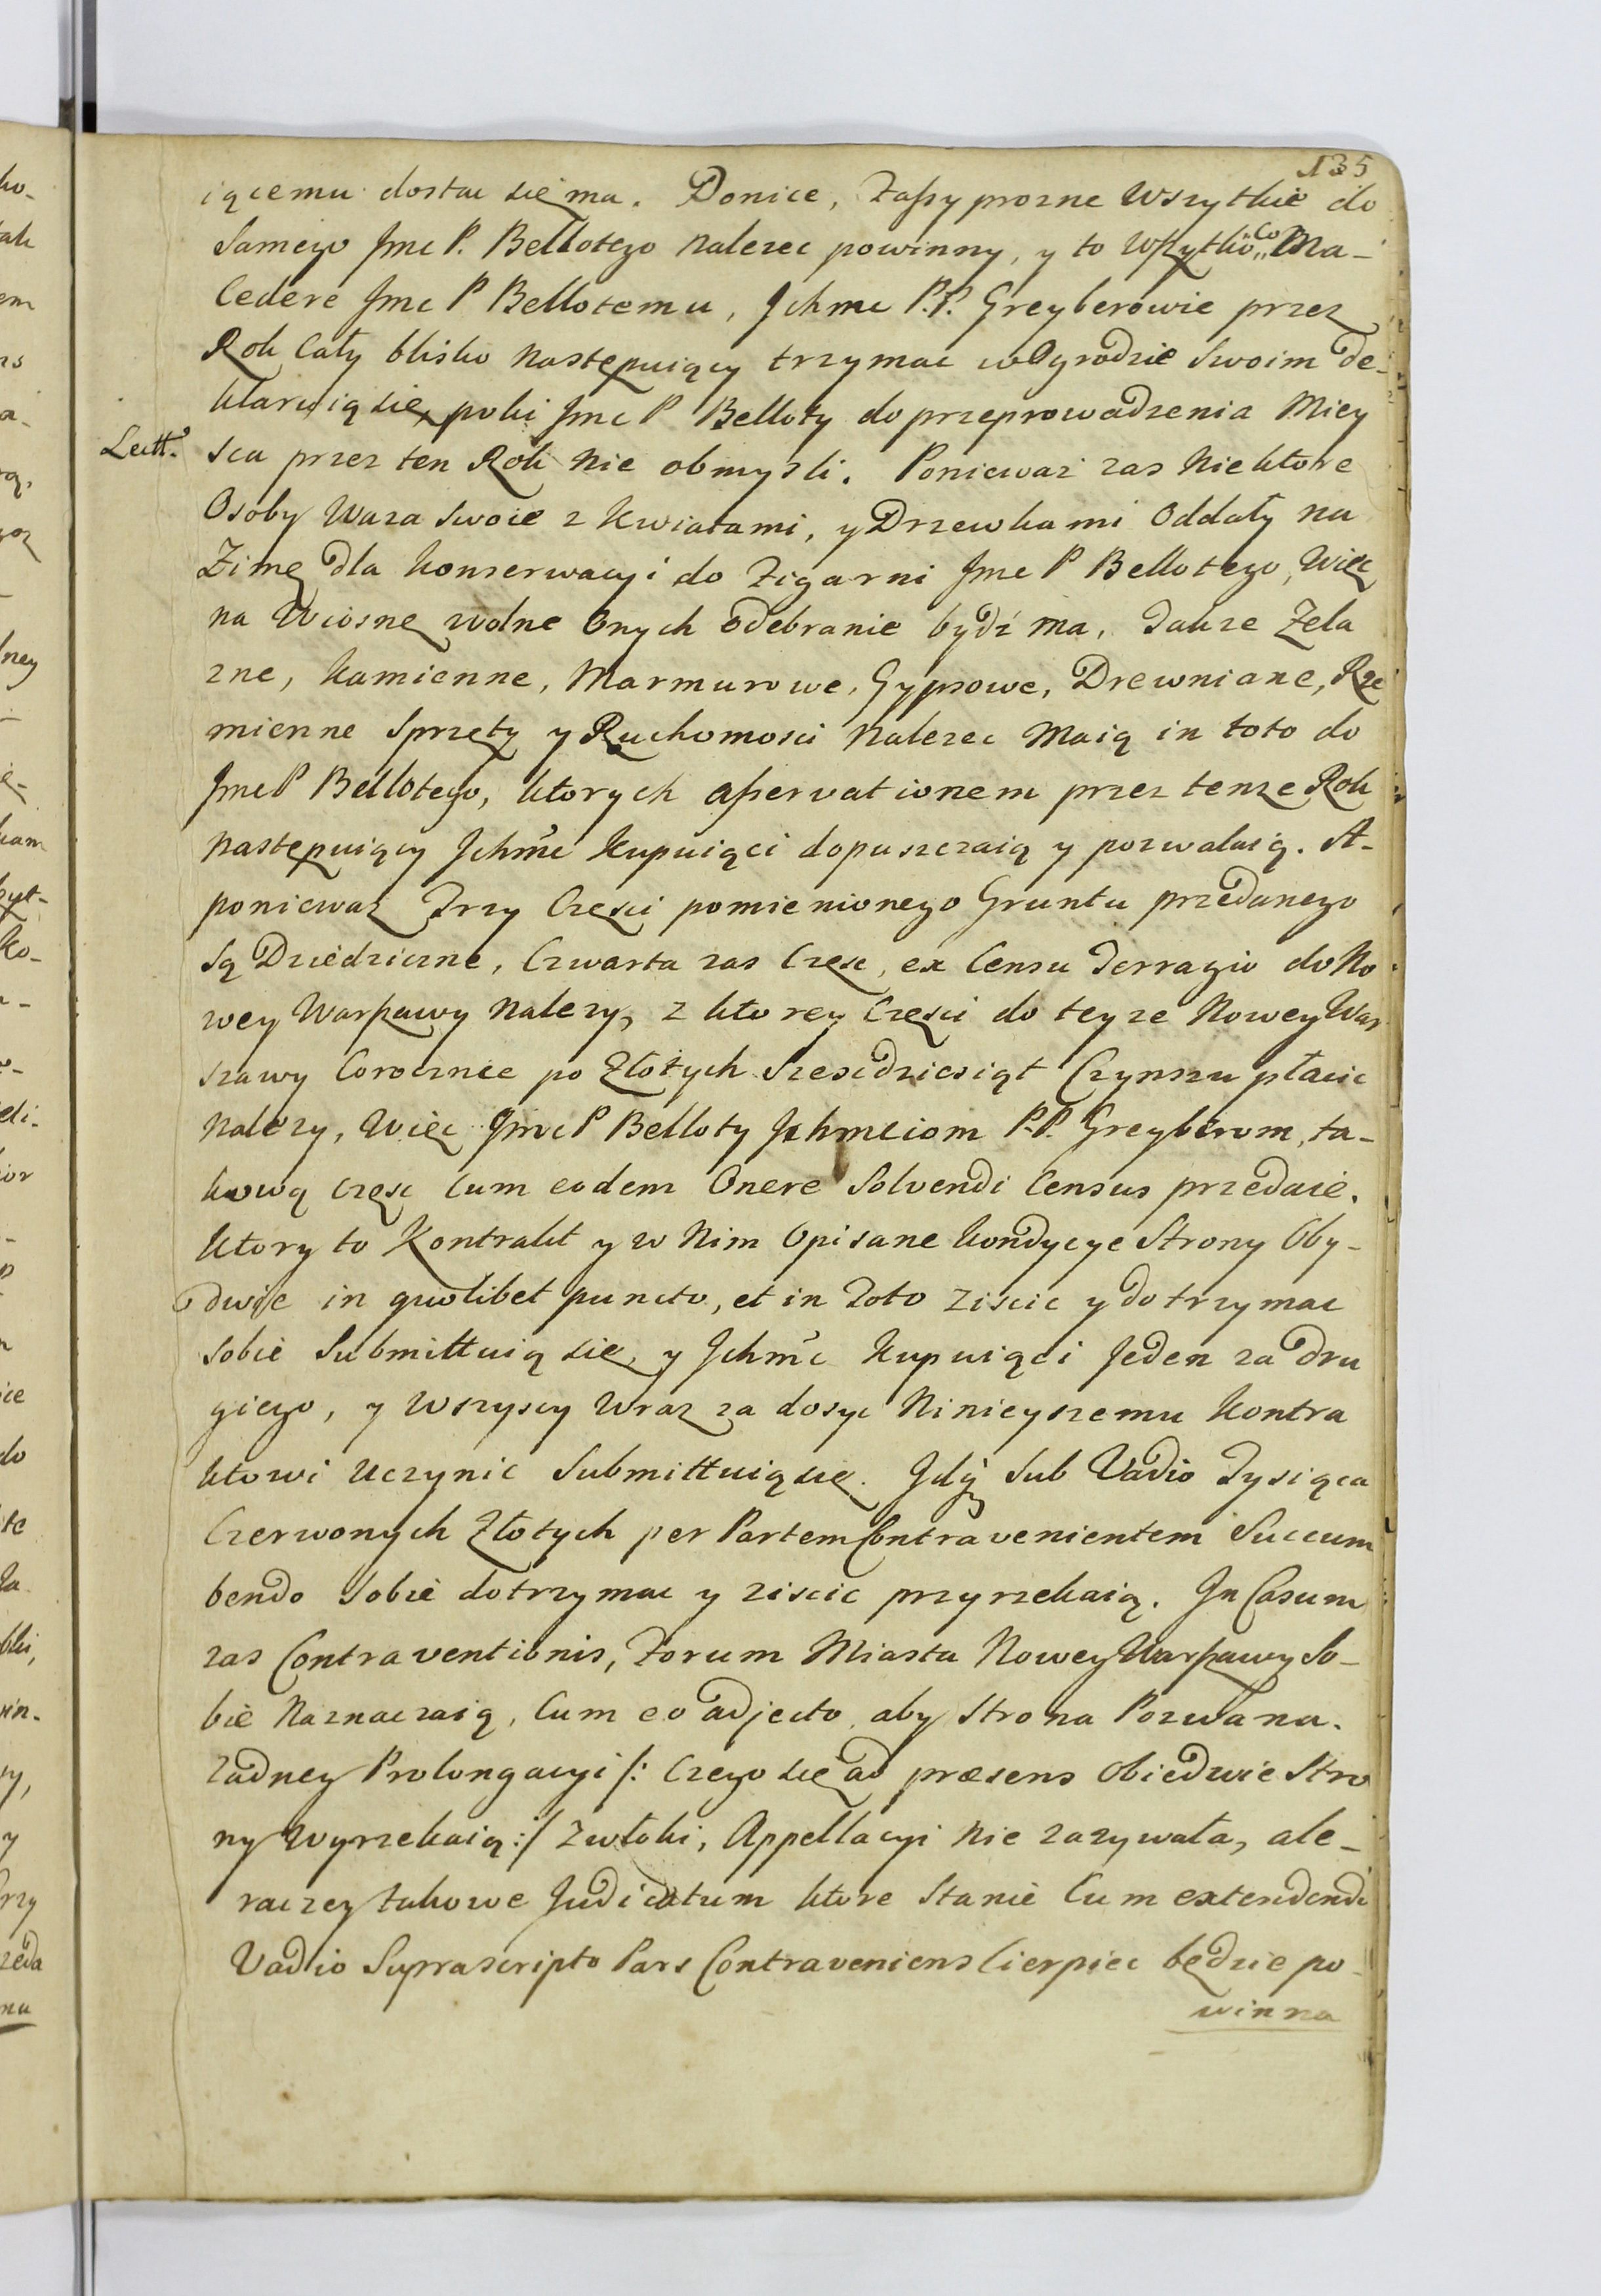 135
iącemu dostac się ma. Donice, Fassy prozne Wszytkie do
Samego Jmc P. Bellotego nalezec powinny, y to Wszytko co Ma-
Cedere Jmc P Bellotemu, Jchmc P.P. Greyberowie przez
Rok Cały blisko następuiący trzymac w Ogrodzie Swoim de-
klaruią się, poki Jmc P Belloty do przeprowadzenia Miey
sca przez ten Rok nie obmysli. Poniewaz zas Niektore
Osoby Waza Swoie z Kwiatami, y Drzewkami Oddały na
Zimę dla konserwacyi do Figarni Jmc P Bellotego, Więc
na Wiosnę wolne Onych odebranie bydź ma, Takze Zela
zne, Kamienne, Marmurowe, Gypsowe, Drewniane, Rze
mienne Sprzęty y Ruchomosci Nalezec Maią in toto do
Jmc P Bellotego, ktorych asservationem przez tenze Rok
następuiący Jchmc Kupuiąci dopuszczaią y pozwalaią. A-
poniewaz Trzy Częsci pomienionego Gruntu przedanego
są Dziedziczne, Czwarta zas Częsc, ex Censu Terragio do No
wey Warszawy Nalezy, z ktorey Częsci do teyze Nowey War
szawy Corocznie po Złotych Szescdziesiąt Czynszu płacic
Nalezy, Więc Jmc P Belloty Jchmciom P.P. Greyberom, ta-
kową częsc Cum eodem Onere Solvendi Census przedaie.
Ktory to Kontrakt y w Nim Opisane Kondycye Strony Oby-
dwie in quolibet puncto, et in Toto ziscic y dotrzymac
sobie Submittuią się, y Jchmc Kupuiąci Jeden za dru
giego, y Wszyscy Wraz za dosyc Ninieyszemu Kontra
ktowi Uczynic Submittuią się. Jdq Sub Vadio Tysiąca
Czerwonych Złotych per Partem Contravenientem Succum
bendo Sobie dotrzymac y ziscic przyrzekaią. Jn Casum
zas Contraventionis, Forum Miasta Nowey Warszawy So-
bie Naznaczaią, Cum eo adjecto, aby Strona Pozwana.
zadney Prolongacyi /: Czego się ad præsens Obiedwie Stro
ny Wyrzekaią :/ zwłoki, Appellacyi Nie zazywała, ale-
raczey takowe Judicatum ktore Stanie Cum extendendi
Vadio Suprascripto Pars Contraveniens Cierpiec będzie po-
winna